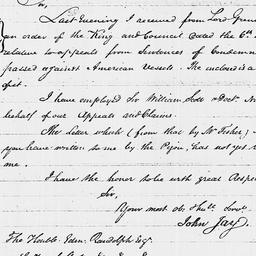 Sir,
Last Evening I received from Lord Gren
an order of the King and Council dated the 6th
relative to appeals from Sentences of Condemn
passed against American Vessels. The inclosed is a
of it.
I have employed Sir William Scott & Doct. N
behalf of our Appeals and Claims.
The Letter which (from that by Mr. Fisher)
you have written to me by the Pigou, has not yet
me.
I have the honor to be with great Respe
Sir,
Your most ob. & hble. Servt.
John Jay.
The Honble. Edm. Randolph Esqr.